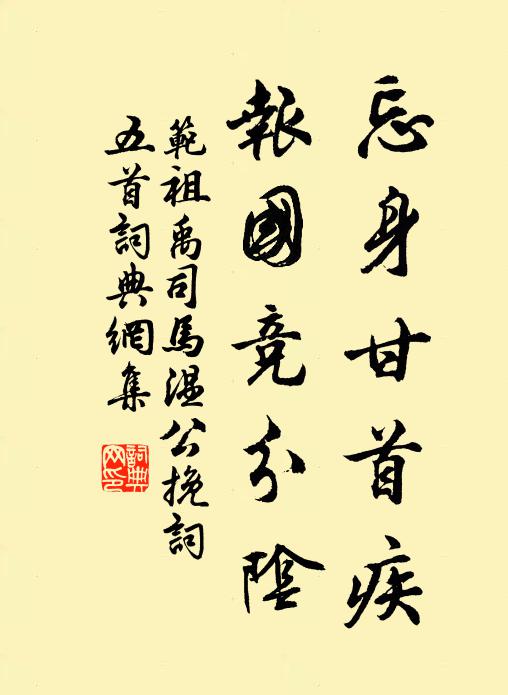 忘身甘首疾
報國競分陰
範祖禹司馬溫公挽詞
五首詞典網集
詞典網印